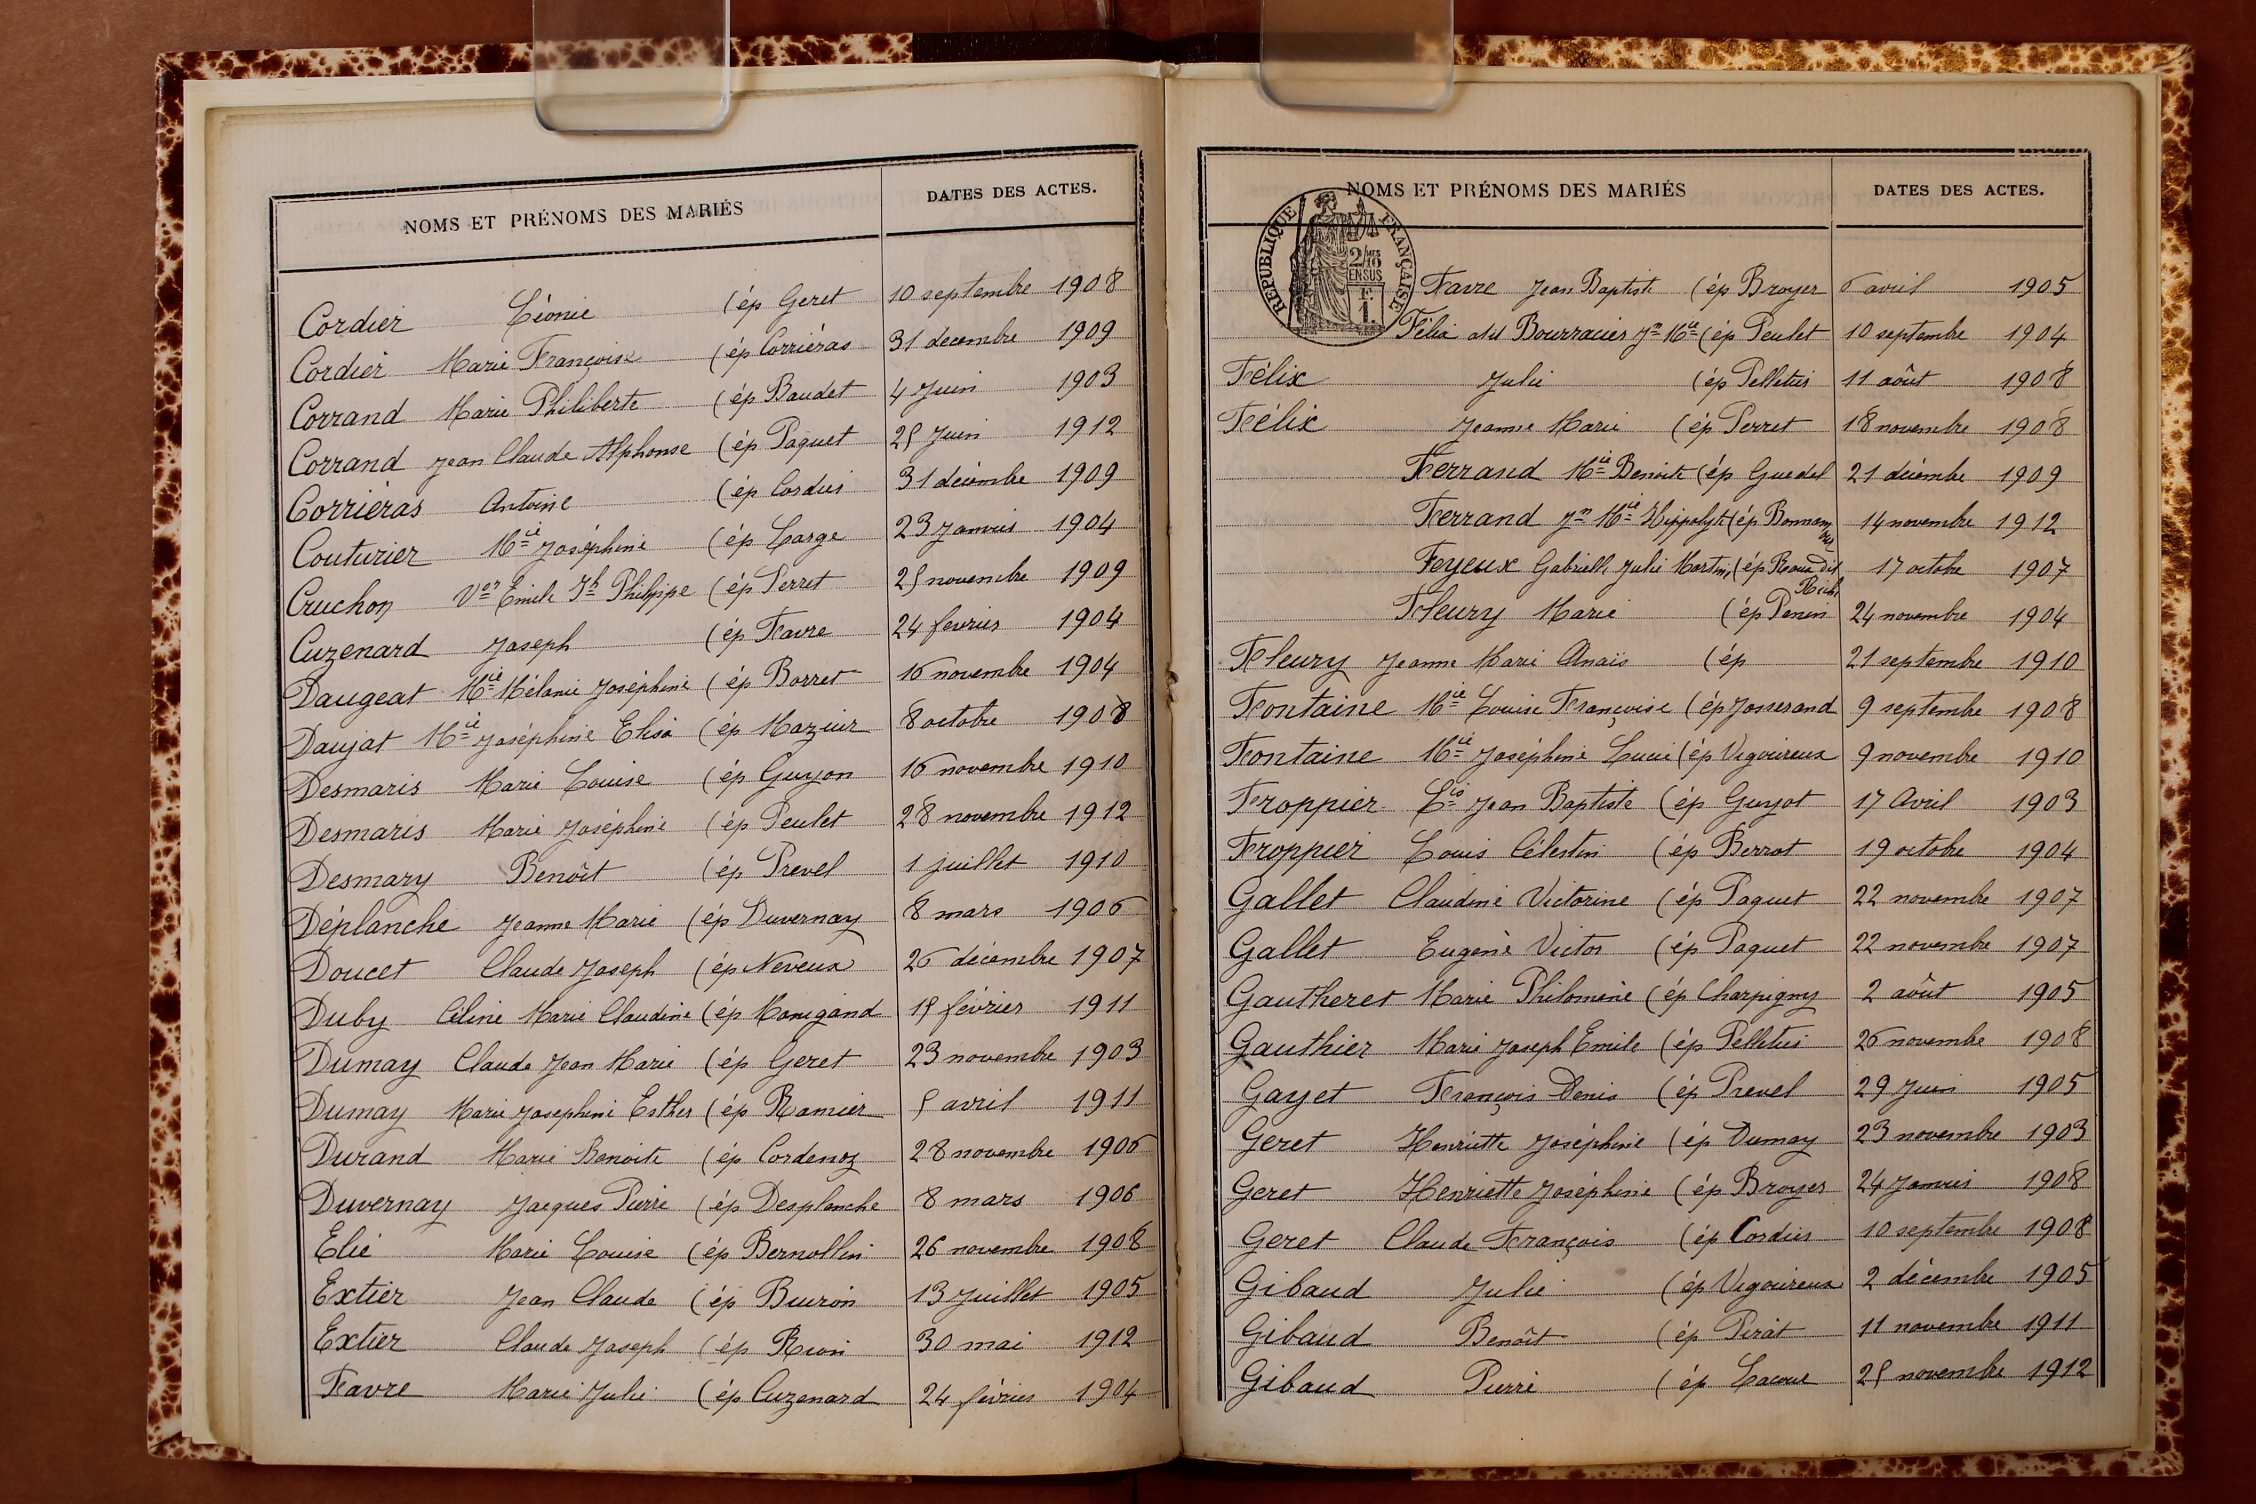 NOMS ET PRÉNOMS DES MARIÉS DATES DES ACTES.
Cordier Léonie (ép Geret 10 septembre 1908
Cordier Marie Françoise (ép Corriéras 31 decembre 1909
Corrand Marie Philiberte (ép Baudet 4 Juin 1903
Corrand Jean Claude Alphonse (ép Paquet 25 Juin 1912
Corriéras Antoine (ép Cordier 31 décembre 1909
Couturier Mie Joséphine (ép Large 23 Janvier 1904
Cruchon Vor Emile Jh Philippe (ép Perret 25 novembre 1909
Cuzenard Joseph (ép Favre 24 fevrier 1904
Daugeat Mie Mélanie Joséphine (ép Borret 16 novembre 1904
Daujat Mie Joséphine Elisa (ép Mazuir 8 octobre 1908
Desmaris Marie Louise (ép Guyon 16 novembre 1910
Desmaris Marie Joséphine (ép Peulet 28 novembre 1912
Desmary Benoît (ép Prevel 1 juillet 1910
Déplanche Jeanne Marie (ép Duvernay 8 mars 1906
Doucet Claude Joseph (ép Neveux 26 décembre 1907
Duby Céline Marie Claudine (ép Monigand 15 février 1911
Dumay Claude Jean Marie (ép Geret 23 novembre 1903
Dumay Marie Josephine Esther (ép Ramier 5 avril 1911
Durand Marie Benoite (ép Cordenoz 28 novembre 1906
Duvernay Jacques Pierre (ép Desplanche 8 mars 1906
Elie Marie Louise (ép Bernollin 26 novembre 1908
Extier Jean Claude (ép Buiron 13 Juillet 1905
Extier Claude Joseph (ép Rion 30 mai 1912
Favre Marie Julie (ép Cuzenard 24 février 1904
NOMS ET PRÉNOMS DES MARIÉS DATES DES ACTES.
REPUBLIQUE FRANÇAISE
2/10 MES
EN SUS
F.
1.
Favre Jean Baptiste (ép Broyer 6 avril 1905
Félix dit Bourracier Jne Mie (ép Peulet 10 septembre 1904
Félix Julie (ép Pelletier 11 août 1908
Félix Jeanne Marie (ép Perret 18 novembre 1908
Ferrand Mie Benoite (ép Guedel 21 décembre 1909
Ferrand Jn Mie Hippolyte (ép 14 novembre 1912
Feyeux Gabrielle Julie Martin (ép Roux dit 17 octobre 1907
Riche
Fleury Marie (ép Penin 24 novembre 1904
Fleury Jeanne Marie Anaïs (ép 21 septembre 1910
Fontaine Mie Louise Françoise (ép Josserand 9 septembre 1908
Fontaine Mie Joséphine Lucie (ép Vigoureux 9 novembre 1910
Froppier Lis Jean Baptiste (ép Guyot 17 Avril 1903
Froppier Louis Célestin (ép Berrot 19 octobre 1904
Gallet Claudine Victorine (ép Paquet 22 novembre 1907
Gallet Eugène Victor (ép Paquet 22 novembre 1907
Gautheret Marie Philomène (ép Charpigny 2 août 1905
Gauthier Marie Joseph Emile (ép Pelletier 26 novembre 1908
Gayet François Denis (ép Prevel 29 Juin 1905
Geret Henriette Joséphine (ép Dumay 23 novembre 1903
Geret Henriette Joséphine (ép Broyer 24 Janvier 1908
Geret Claude François (ép Cordier 10 septembre 1908
Gibaud Julie (ép Vigoureux 2 décembre 1905
Gibaud Benoît (ép Pirat 11 novembre 1911
Gibaud Pierre (ép Lacour 25 novembre 1912